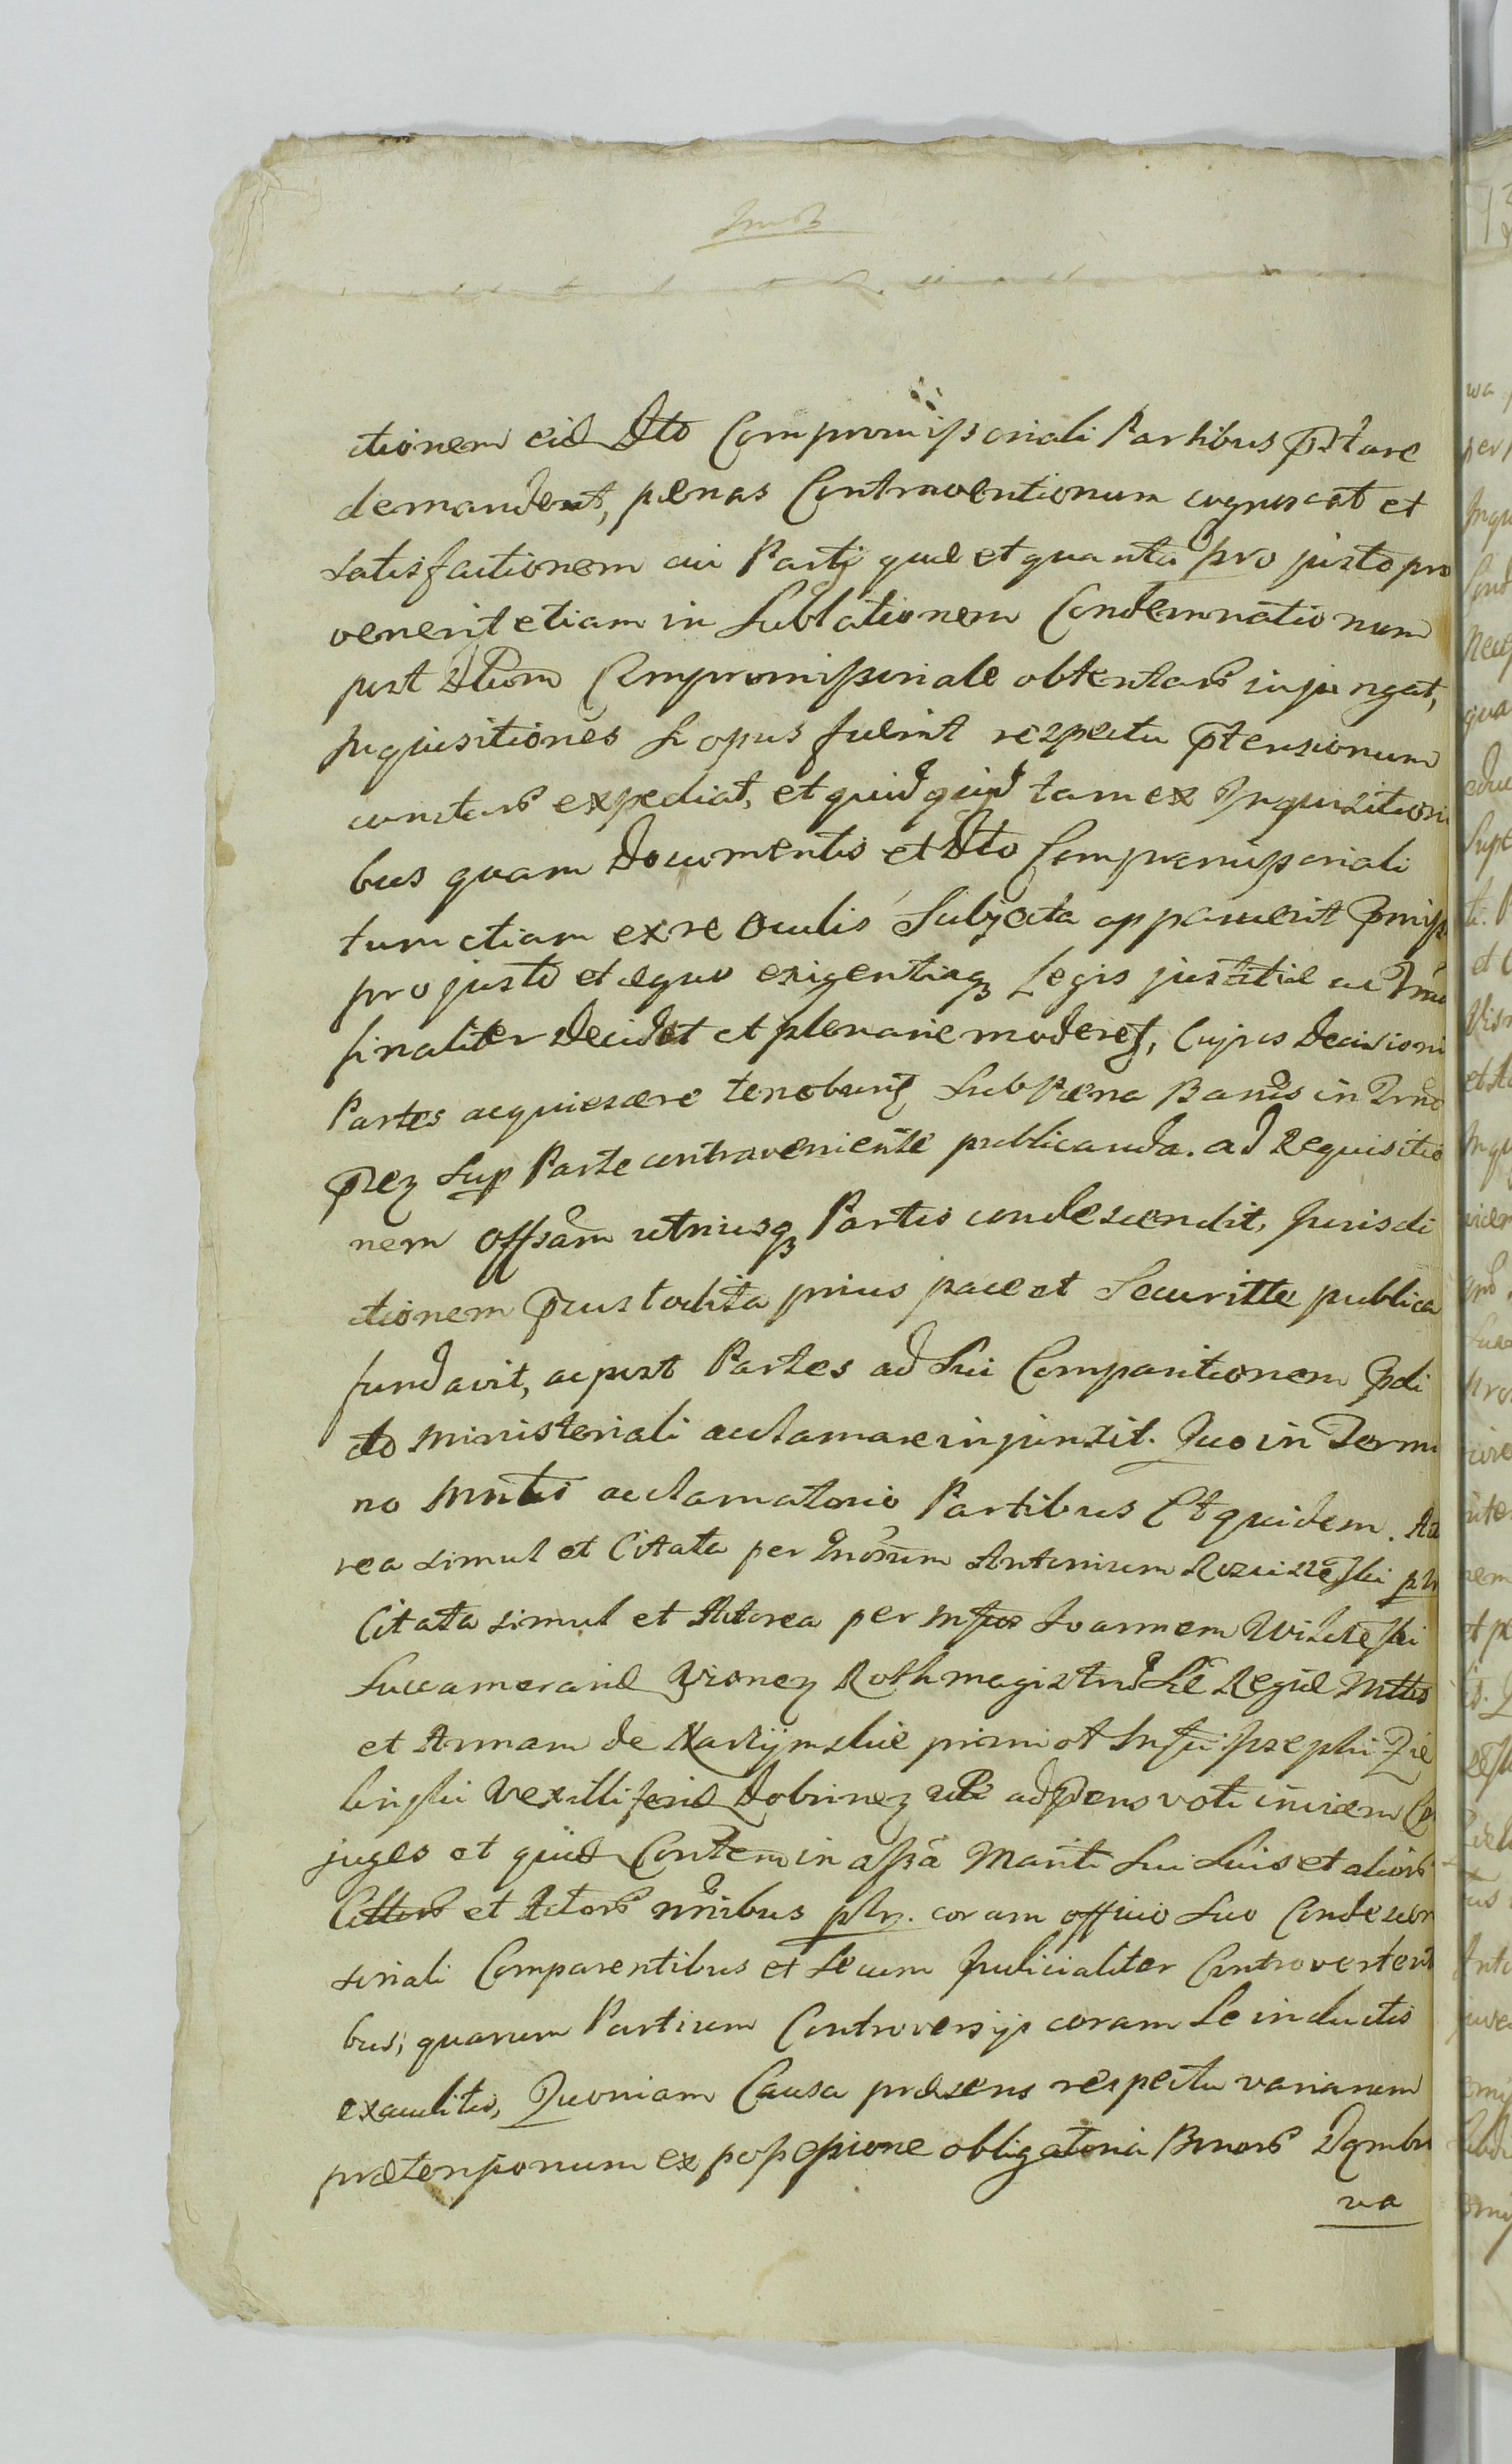 ctionem eid Dto Compromissoriali Partibus pstare
demandent, pænas Contraventionum cognoscat et
satisfactionem cui Parti quæ et quanta pro justo pro
venerit etiam in Sublationem Condemnationum
post Dtum Compromissoriale obtentar injungat,
Inquisitiones si opus fuerit respectu ptensionum
cunctar expediat, et quidquid tam ex Inquisitioni
bus quam Documentis et Dto Compromissoriali
tum etiam ex re oculis Subjecta apparuerit
pro justo et æquo exigentiaq Legis justitiæ ac
finaliter decidet et plenarie moderet, Cujus Decisioni
Partes acquiescere tenebunt Sub Pæna Bannis in Trno
pnez Sup Parte contraveniente publicanda. ad Requisitio
nem Offsam utriusq Partis condescendit, Jurisdi
ctionem pcustodita prius pace et Securitte publica
fundavit, ac post Partes ad Sui Comparitionem pdi
cto Ministeriali acclamare injunxit. Quo in Termi
no acclamatorio Partibus Et quidem. Acto
rea simul et Citata per Gnorum Antonium
Citata simul et Actorea per Joannem
Succamerarid Visnen Rothmagistrum Sæ Regiæ Mttis
et Annam de primi ot Josephi Zie
linski Vexilliferid Dobrinen ad pens voti invicem Con
juges et quid Contem in assa Mariti Sui Suis et alior
Cittor et Actor nnibus pln. coram officio Suo Condescen
soriali Comparentibus et Secum Judicialiter Controvertent
bus, quarum Partium Controversijs coram Se inductis
exauditis, Quoniam Causa præsens respectu variarum
prætensionum ex possessione obligatoria Bnorum Dąmbro
va